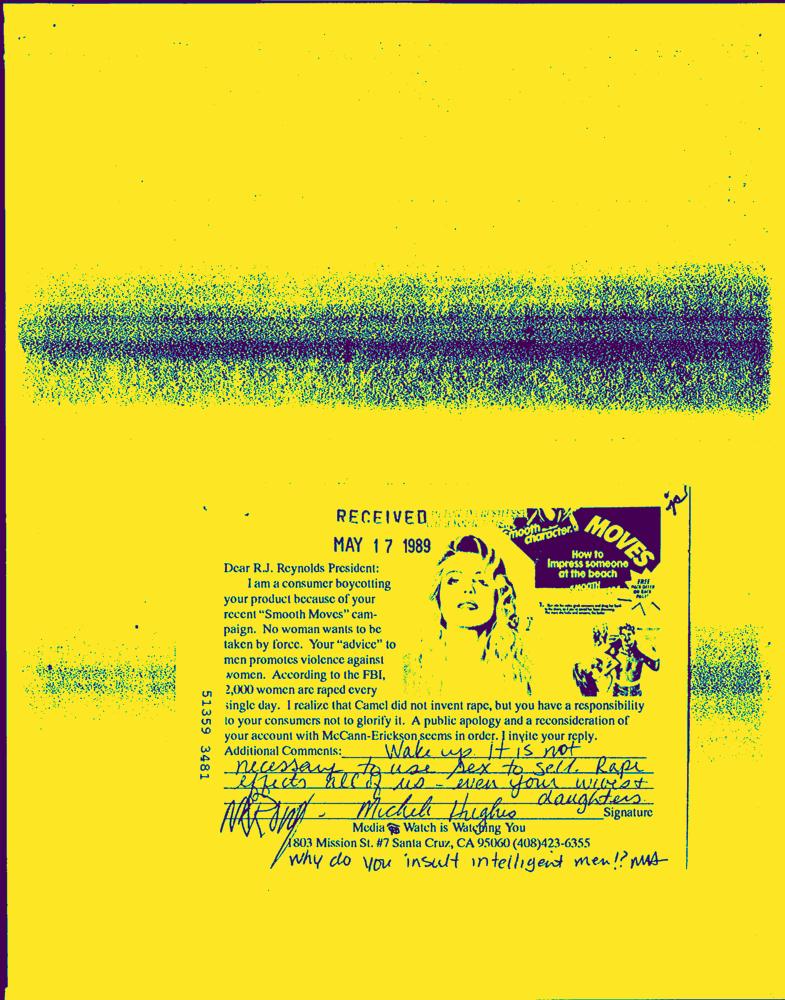 RECEIVED
MAY 17 1989
smooth
character.
MOVES
How to
impress someone
at the beach
FREE
Dear R.J. Reynolds President:
I am a consumer boycotting
your product because of your
recent “Smooth Moves” cam-
paign. No woman wants to be
taken by force. Your “advice” to
men promotes violence against
women. According to the FBI,
2,000 women are raped every
single day. I realize that Camel did not invent rape, but you have a responsibility
to your consumers not to glorify it. A public apology and a reconsideration of
your account with McCann-Erickson seems in order. I invite your reply.
Additional Comments: Wake up. It is not
necessary to use sex to sell. Rape
effects all of us - even your wives +
daughters
Michele Hughes
Signature
Media Watch is Watching You
1803 Mission St. #7 Santa Cruz, CA 95060 (408)423-6355
Why do you insult intelligent men!?
51359 3481